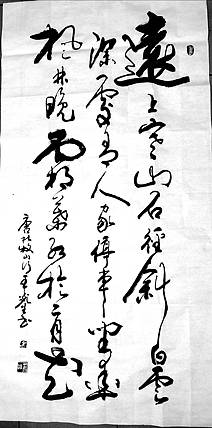 遠上寒山石徑斜白雲
深處有人家停車坐愛
楓林晚霜葉紅於二月花
唐杜牧山行